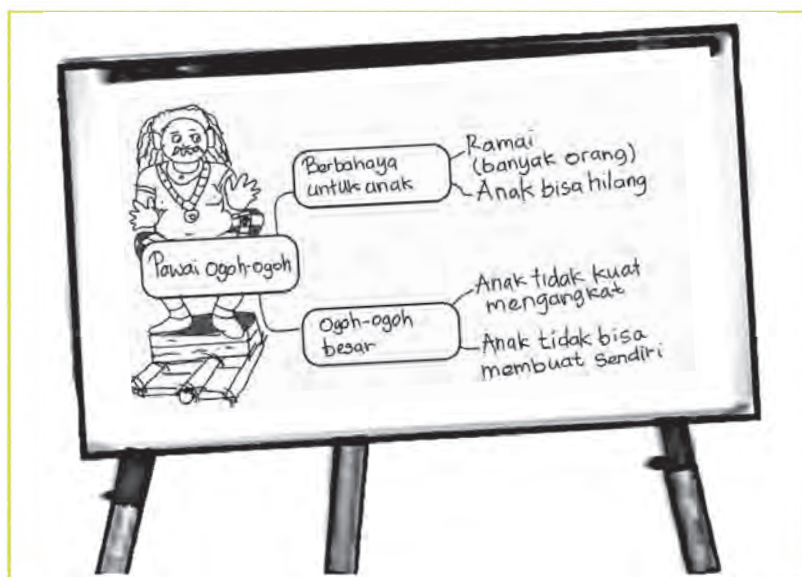 Pawai Ogoh-ogoh
Berbahaya
untuk anak
Ramai
(banyak orang)
Anak bisa hilang
Ogoh-ogoh
besar
Anak tidak kuat
mengangkat
Anak tidak bisa
membuat sendiri